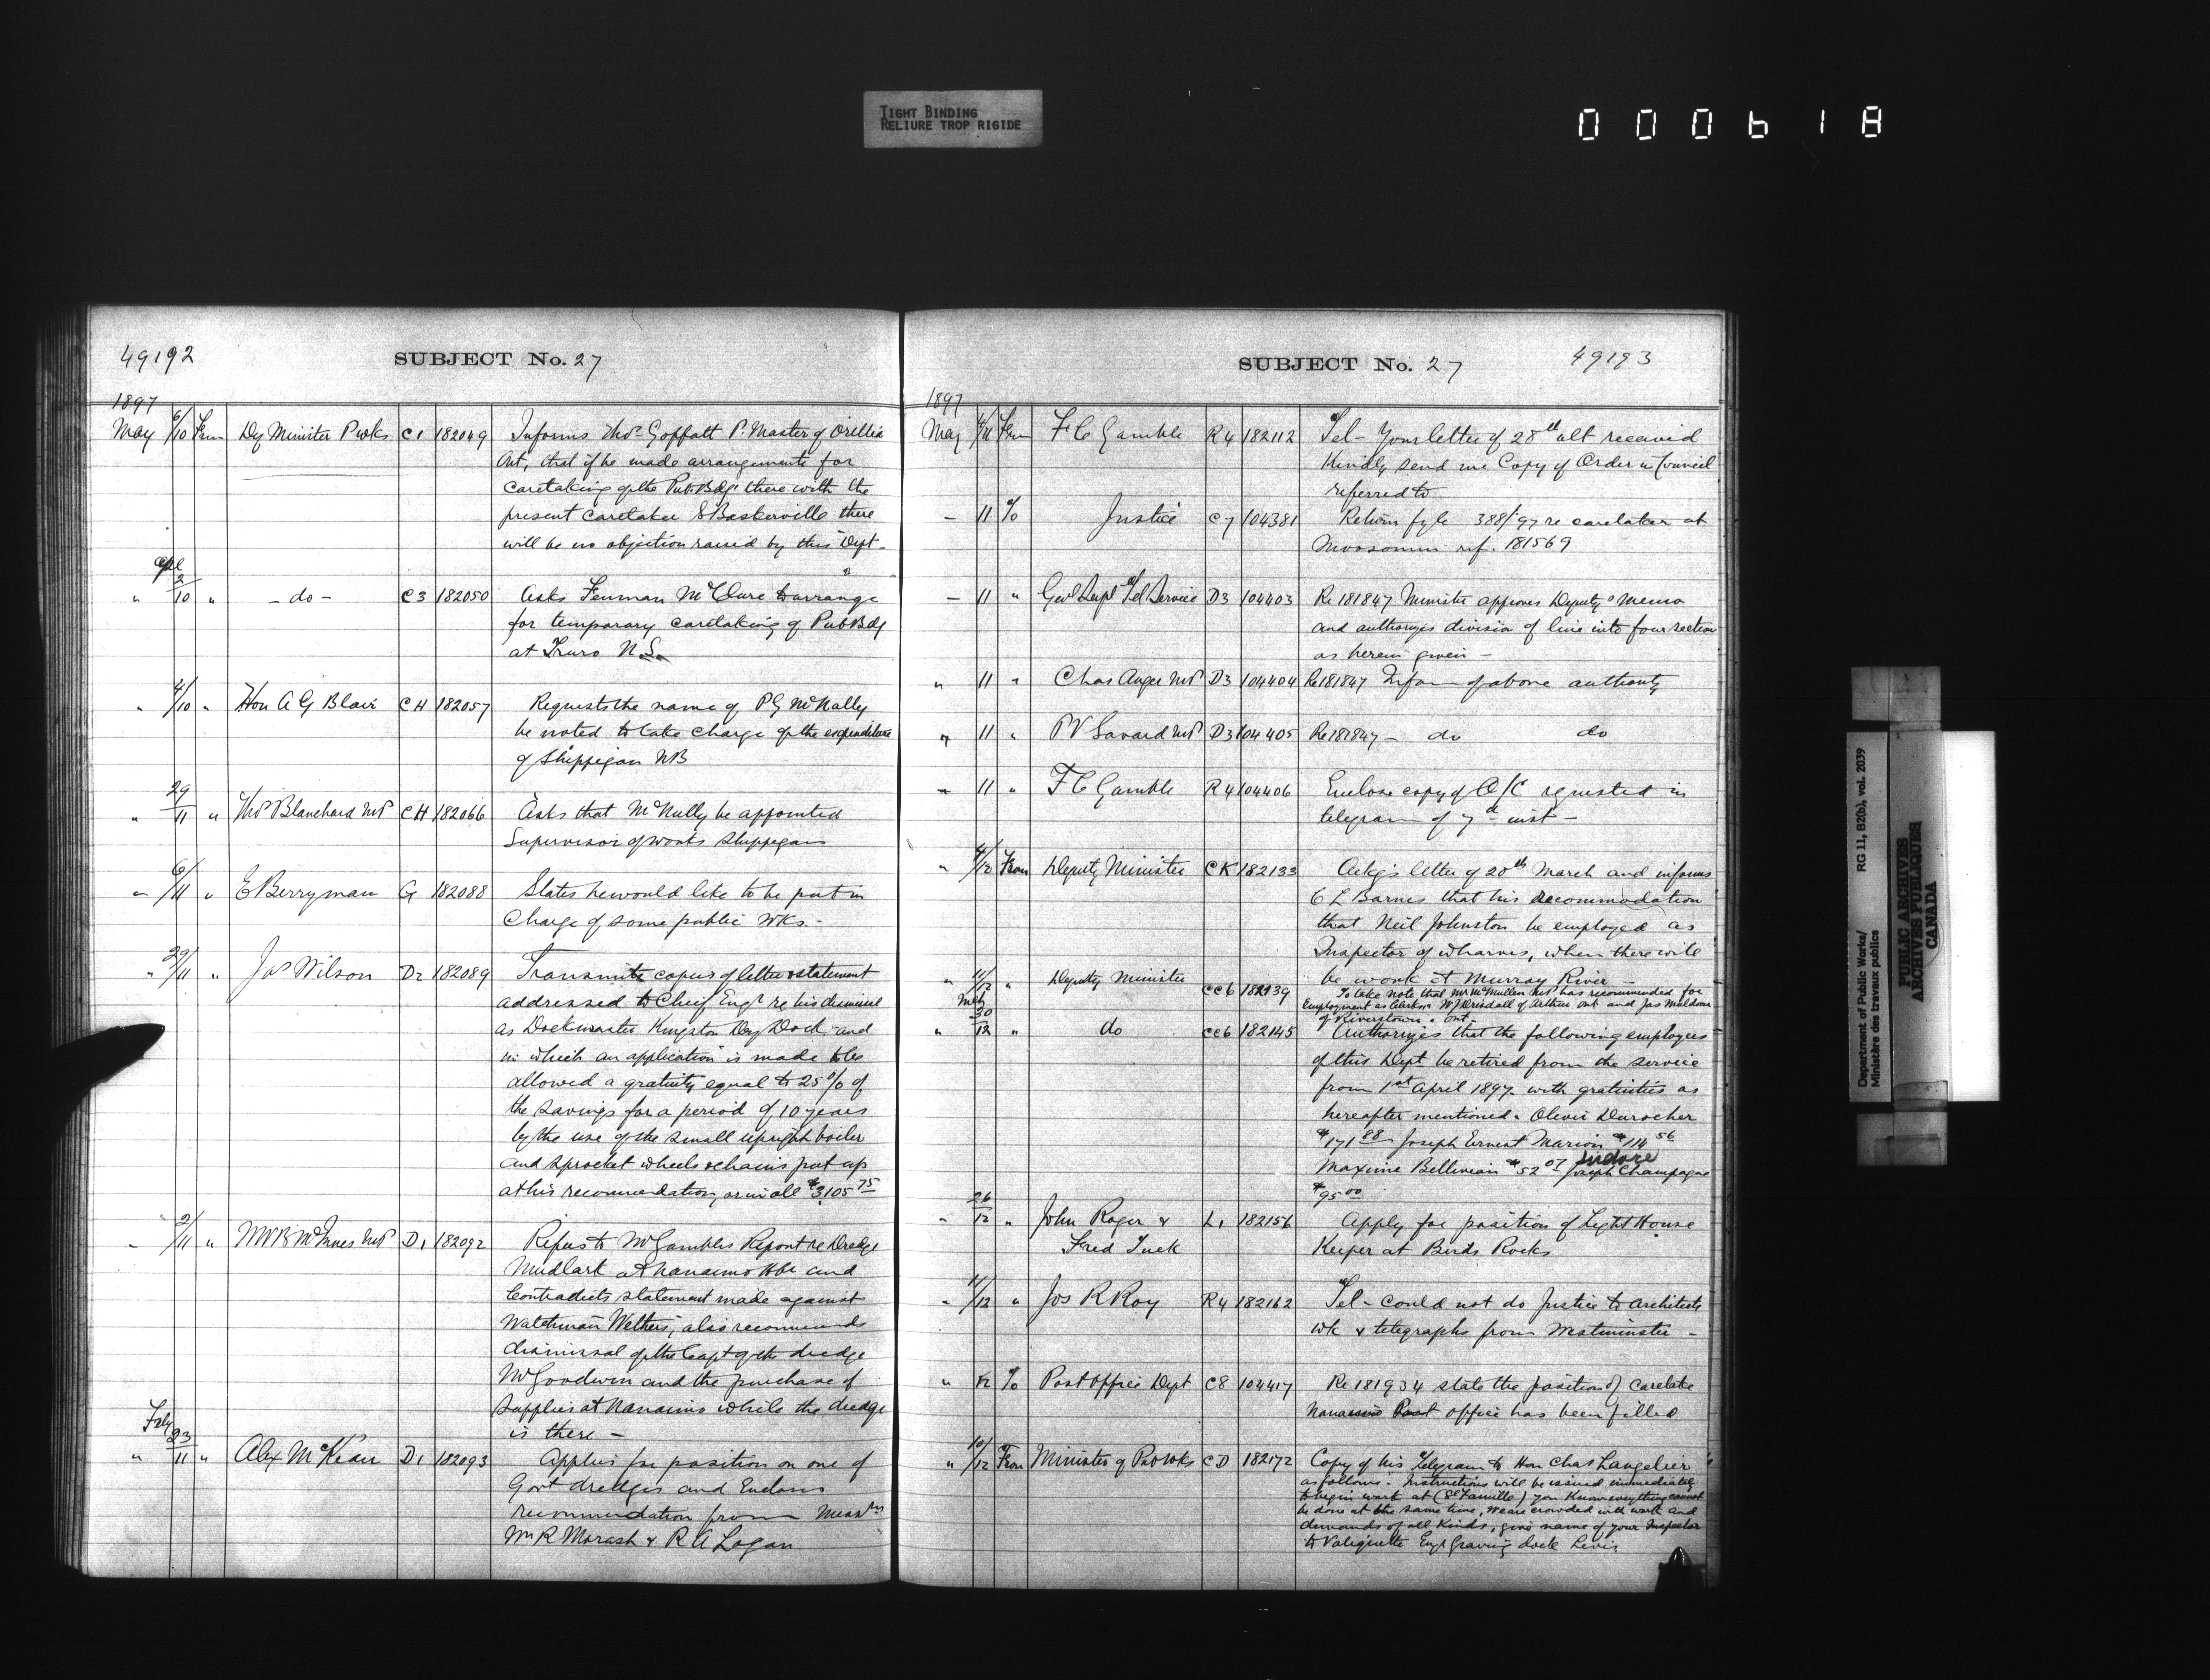 TIGHT BINDING
RELIURE TROP RIGIDE
000618
49192
SUBJECT No. 27
1897
May 6/10 From Dy Minister P wks C1 182049 Informs Thos Goffatt P. Master of Orillia
Ont, that if he made arrangements for
caretaking of the Pub. Bdg there with the
present caretaker S Baskerville there
will be no objection raised by this Dept -
Apl
" 2/10 " - do - C3 182050 Asks Feuman McClure to arrange
for temporary caretaking of Pub Bdg
at Truro N.S.
" 4/10 " Hon A G Blair CH 182057 Requests the name of P G McNally
be noted to take charge of the expenditure
of Shippegan NB
" 29/11 " Thos Blanchard MP CH 182066 Asks that McNally be appointed
Supervisor of works Shippegan
" 6/11 " E Berryman G 182088 States he would like to be put in
Charge of some public Wks. -
" 29/11 " Jas Wilson D2 182089 Transmits copies of letter & statement
addressed to Chief Engr re his dismissal
as Dockmaster Kingston Dry Dock and
in which an application is made to be
allowed a gratuity equal to 25% of
the savings for a period of 10 years
by the use of the small upright boiler
and sprocket wheels & chains put up
at his recommendation, or in all $3105 75
" 2/11 " W W B McInnes MP D1 182092 Refers to Mr Gambles Report re Dredge
Mudlark at Nanaimo Hbr and
Contradicts statement made against
Watchman Wethers, also recommends
dismissal of the Capt of the dredge
Mr Goodwin and the purchase of
supplies at Nanaimo while the dredge
is there -
Feby
" 23/11 " Alex McKean D1 182093 Applies for position on one of
Govt dredges and Encloses
recommendation from Messrs
Wm R Morash & R A Logan
SUBJECT No. 27
49193
1897
May 4/11 From F C Gamble R4 182112 Tel - Your letter of 28th ult received
Kindly send me Copy of Order in Council
referred to
- 11 To Justice C7 104381 Return fyle 388/97 re caretaker at
Moosomin ref. 181569
- 11 " Genl Supt Tel Service D3 104403 Re 181847 Minister approves Deputys memo
and authorizes division of line into four section
as herein given -
" 11 " Chas Angers MP D3 104404 Re 181847 Inform of above authority
" 11 " P V Savard MP D3 104405 Re 181847 - do do
" 11 " F C Gamble R4 104406 Enclose copy of O/C requested in
telegram of 7th inst -
" 4/12 From Deputy Minister CK 182133 Ackgs letter of 20th March and informs
C L Barnes that his recommodation
that Neil Johnston be employed as
Inspector of wharves, when there will
be work at Murray River -
" 11/12 " Deputy Minister CC6 182139 To take note that Mr McMullen MP has recommended for
Employment as Clerks W J Driscall of Arthur Ont and Jas Muldoon
of Riverstown. Ont.
Mch
" 30/12 " do CC6 182145 Authorizes that the following employees
of this Dept be retired from the service
from 1st April 1897 with gratuities as
hereafter mentioned. Olevir Durocher
$171 88 Joseph Ernest Marion $114 56
Maxime Bellevian $52 07 Isidore Joseph Champagne
$95 00
" 26/12 " John Roger & L1 182156 Apply for position of Light House
Fred Tuck Keeper at Birds Rocks
" 11/12 " Jos R Roy R4 182162 Tel - Could not do justice to architects
wk & telegraphs from Westminster -
" 12 To Post Office Dept C8 104417 Re 181934 state the position of caretake
Nanaimo Post office has been filled
" 10/12 From Minister of Pub Wks CD 182172 Copy of his Telegram to Hon Chas Langelier
as follows: Instructions will be issued immediately
to begin work at (Ste Famille) you know everything cannot
be done at the same time, We are crowded with work and
demands of all Kinds, give name of your Inspector
to Valiquette Engr Graving dock Levis
Department of Public Works/
Ministère des travaux publics
RG 11, B2(b), vol. 2039
PUBLIC ARCHIVES
ARCHIVES PUBLIQUES
CANADA